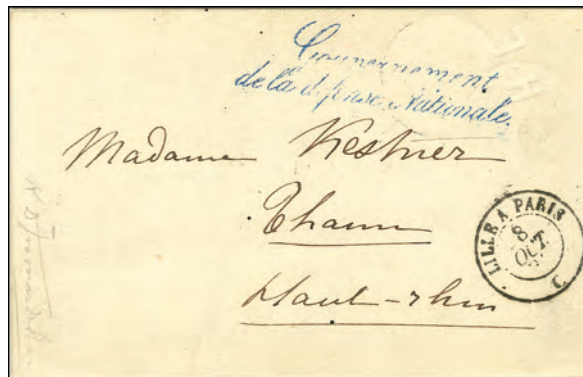 Gouvernement
de la défense Nationale.
Madame Kestner
Thann
Haut-rhin
LILLE A PARIS
8
OCT.
C